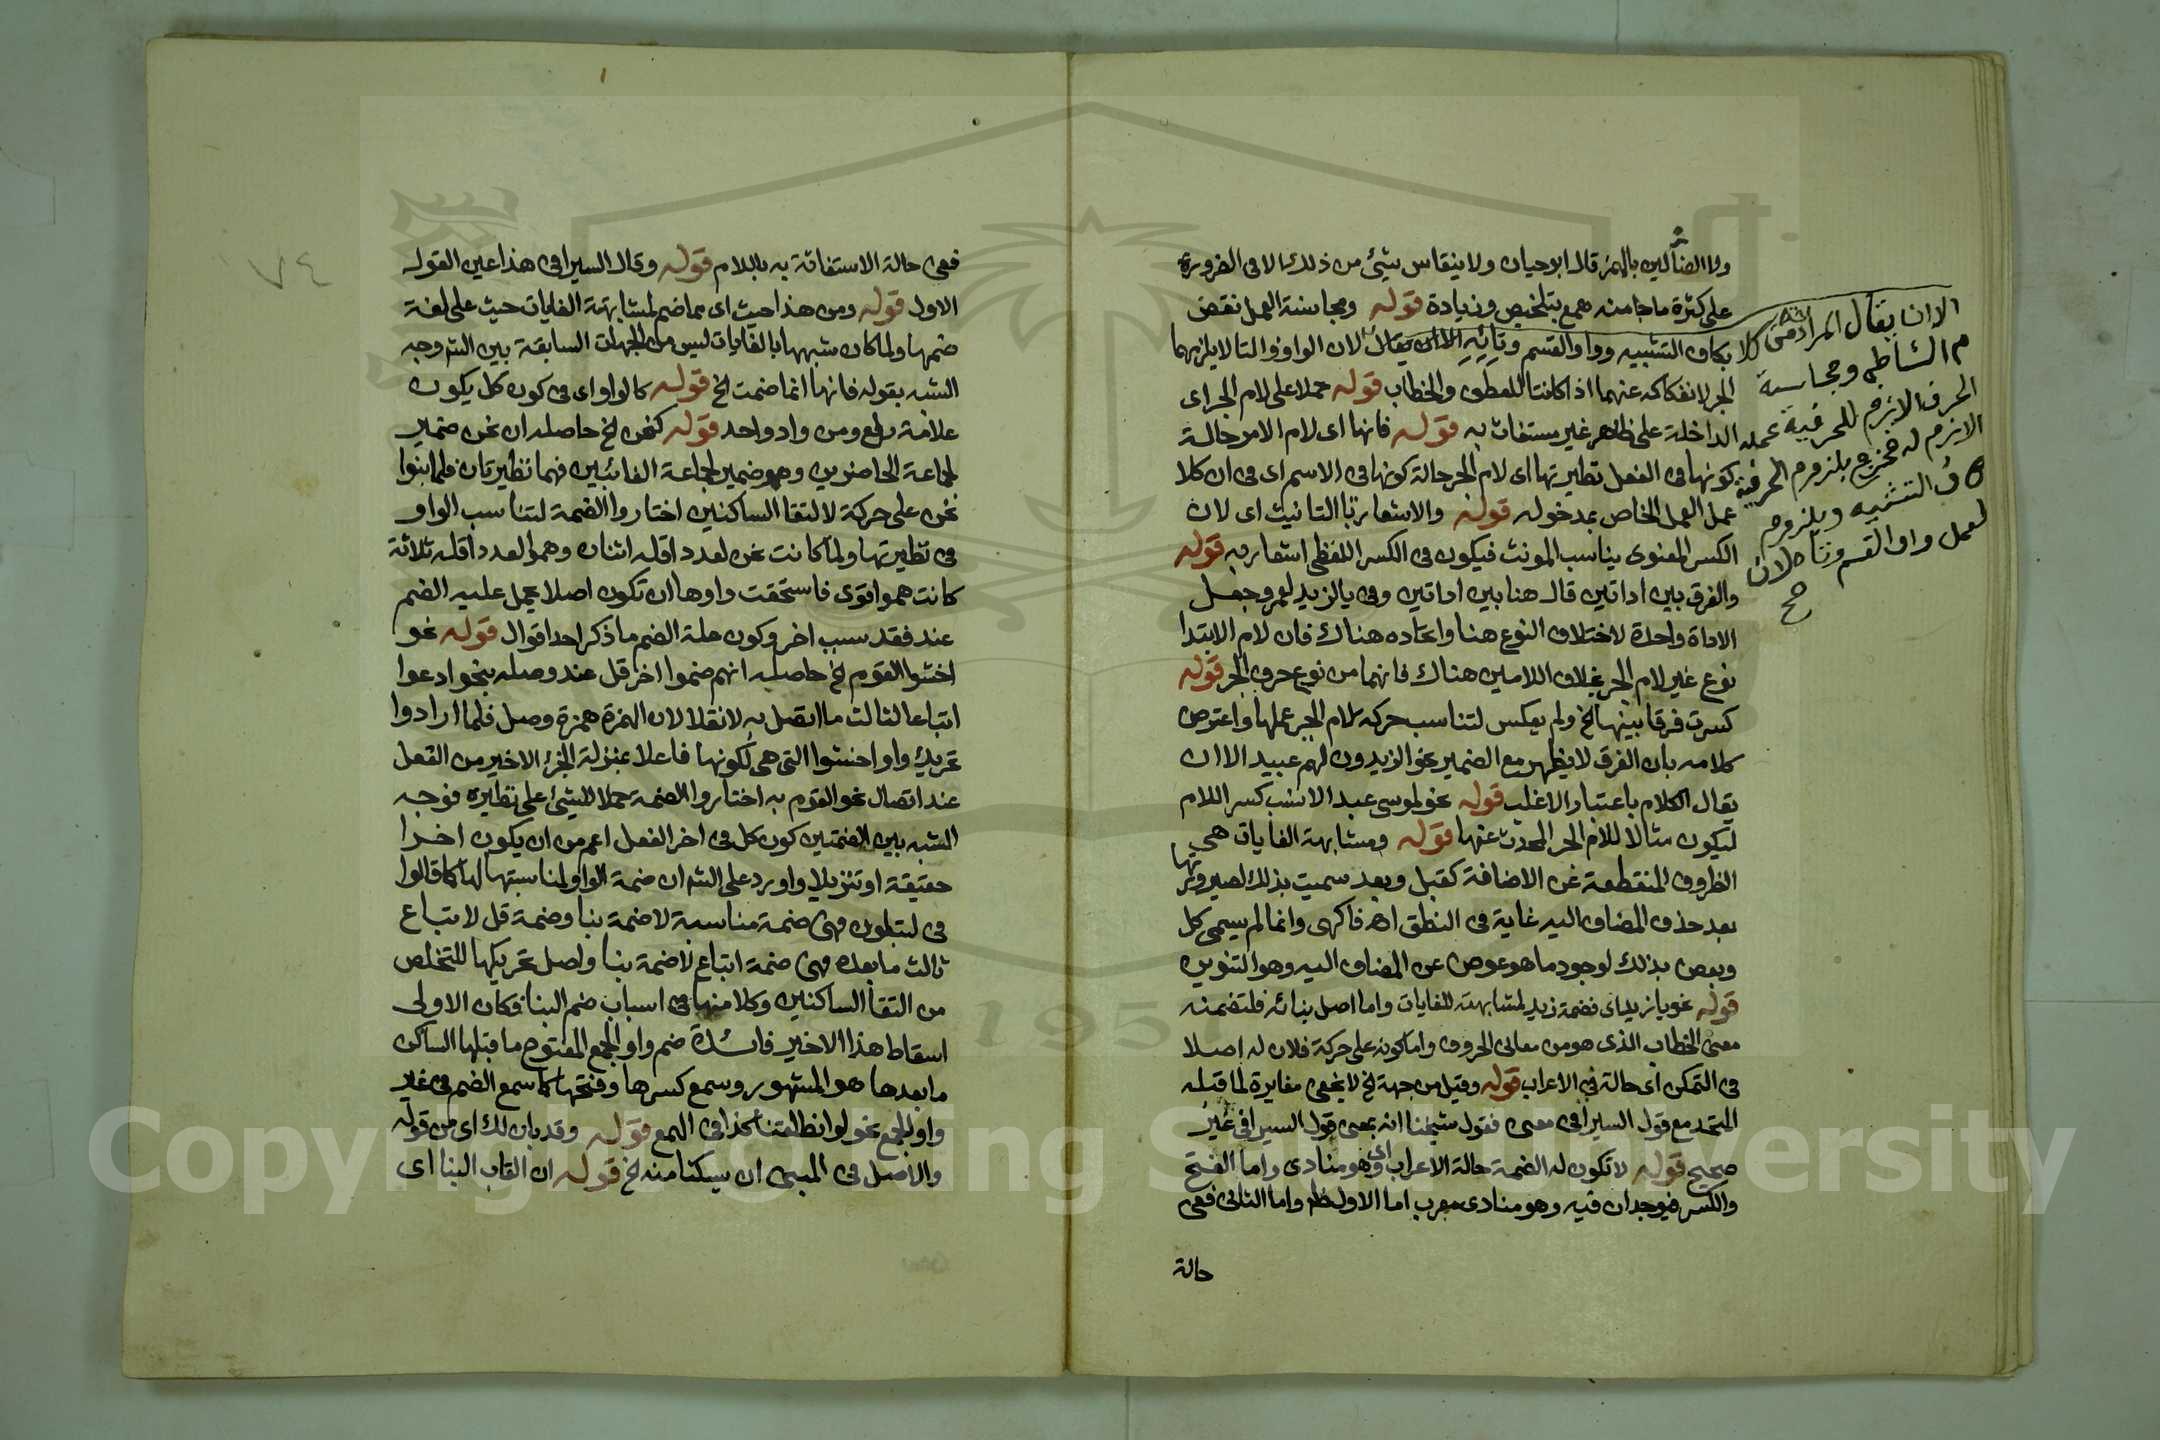 ولا الضألين بالهمز قال ابو حيان ولا ينقاس شيئ من ذلك الا في الضرورة
على كثرة ما جا منه همع بتلخيص وزيادة قوله ومجانسة العمل نقض
بكاف التشبيه وواو القسم وتائه الا ان يقال لان الواو والتا لا يلزمهما
الجر لانفكاكه عنهما اذا كانتا للعطف والخطاب قوله حملا على لام الجر اى
الداخلة على ظاهر غير مستغاث به قوله فانها اى لام الامر حالة
كونها فى الفعل نظيرتها اى لام الجر حالة كونها فى الاسم اى فى ان كلا
عمل العمل الخاص بمدخوله قوله والاشعار بالتانيث اى لان
الكسر المعنوى يناسب المونث فيكون فى الكسر اللفظى اشعار به قوله
والفرق بين اداتين قال هنا بين اداتين وفى يالزيد لعمرو جعل
الاداة واحدة لاختلاف النوع هنا واتحاده هناك فان لام الابتدا
نوع غير لام الجر بخلاف اللامين هناك فانهما من نوع حرف الجر قوله
كسرت فرقا بينهما الخ ولم يعكس لتناسب حركه لام الجر عملها واعترض
كلامه بان الفرق لا يظهر مع الضمير نحو الزيدون لهم عبيد الا ان
يقال الكلام باعتبار الاغلب قوله نحو لموسى عبد الانسب كسر اللام
ليكون مثالا للام الجر المحدث عنها قوله ومشابهة الغايات هى
الظروف المنقطعة عن الاضافة كقبل وبعد سميت بذلك لصيرورتها
بعد حذف المضاف اليه غاية فى النطق اه فاكهى وانما لم يسمى كل
وبعض بذلك لوجود ما هو عوض عن المضاف اليه وهو التنوين
قوله نحو يا زيد اى فضمة زيد لمشابهته للغايات واما اصل بنائه فلتضمنه
معنى الخطاب الذى هو من معانى الحروف واما كونه على حركة فلان له اصلا
فى التمكن اى حالة فى الاعراب قوله وقيل من جهة الخ لا يخفى مغايرة لما قبله
المتحد مع قول السيرافى معنى فقول شيخنا انه بمعنى قول السيرافى غير
صحيح قوله لا تكون له الضمة حالة الاعراب اى وهو منادى واما الفتح
والكسر فيوجدان فيه وهو منادى معرب اما الاول ظا واما الثانى ففى
حالة
الا ان يقال المراد
م الشاطبى ومجانسة
الحرف الازم للحرفية عمله
الازم له فخرج بلزوم الحرفية
كاف التشبيه وبلزوم
العمل واو القسم وتا لان
صح
٧٤
ففى حالة الاستغاثة به باللام قوله وقال السيرافى هذا عين القول
الاول قوله ومن هذا حيث اى مما ضم لمشابهته الغايات حيث على لغة
ضمها ولما كان شبهها بالغايات ليس من الجهات السابقة بين الش وجه
الشبه بقوله فانها انما ضمت الخ قوله كالواو اى فى كون كل يكون
علامة رفع ومن واد واحد قوله كنحن الخ حاصله ان نحن ضمير
لجماعة الحاضرين وهمو ضمير لجماعة الغائبين فهما نظيرتان فلما بنوا
نحن على حركة لالتقا الساكنين اختاروا الضمة لتناسب الواو
فى نظيرتها ولما كانت نحن لعدد اقله اثنان وهمو لعدد اقله ثلاثة
كانت همو اقوى فاستحقت واوها ان تكون اصلا يحمل عليه الضم
عند فقد سبب اخر وكون علة الضم ما ذكر احد اقوال قوله نحو
اخشوا القوم الخ حاصله انهم ضموا اخر قل عند وصله بنحو ادعوا
اتباعا لثالث ما اتصل به لا نقلا لان الهمزة همزة وصل فلما ارادوا
تحريك واو اخشوا التى هى لكونها فاعلا بمنزلة الجزء الاخير من الفعل
عند اتصال نحو القوم به اختاروا الضمة حملا للشيئ على نظيره فوجه
الشبه بين الضمتين كون كل فى اخر الفعل اعم من ان يكون اخرا
حقيقة او تنزيلا واورد على الش ان ضمة الواو لمناسبتها لها كما قالوا
فى لتبلون فهى ضمة مناسبة لا ضمة بنا وضمة قل لاتباع
ثالث ما بعده فهى ضمة اتباع لا ضمة بنا واصل تحريكها للتخلص
من التقا الساكنين وكلامنا فى اسباب ضم البنا فكان الاولى
اسقاط هذا الاخير فائدة ضم واو الجمع المفتوح ما قبلها الساكن
ما بعدها هو المشهور وسمع كسرها وفتحها كما سمع الضم فى غير
واو الجمع نحو لو انطلقنا كذا فى الهمع قوله وقد بان لك اى من قوله
والاصل فى المبنى ان يسكنا منه الخ قوله ان القاب البنا اى
Copyright © King Saud University
1957